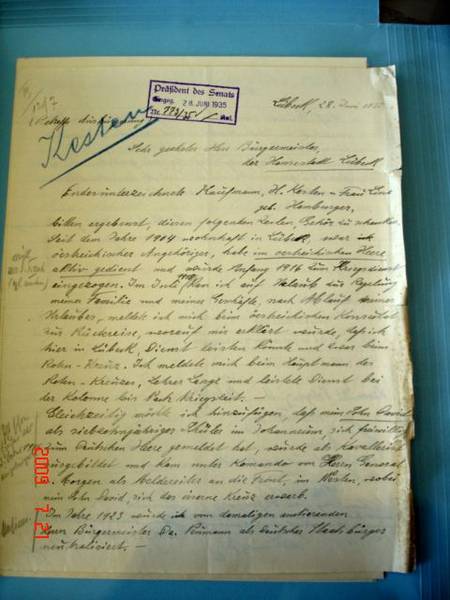 Präsident des Senats
Eingeg. 28. JUNI 1935
Nr.
Lübeck, 28. Juni 1935
1247
Kesten
Sehr geehrter Herr Bürgermeister,
der Hansestadt Lübeck
Endesunterzeichnete Kaufmann, H. Kesten - Frau
geb. Hamburger,
bitten ergebenst, diesen folgenden Zeilen, Gehör zu schenken.
Seit dem Jahre 1904 wohnhaft in Lübeck, war ich
österreichischer Angehöriger, habe im österreichischen Heere
aktiv gedient und wurde Anfang 1916 zum Kriegsdienst
eingezogen. Im Juli kam ich auf Urlaub zur Regelung
meiner Familie und meines Geschäfts, nach Ablauf meines
Urlaubes, meldete ich mich beim österreichischen Konsulat
zur Rückreise, worauf mir erklärt wurde, daß ich
hier in Lübeck, Dienst leisten könnte und zwar beim
Roten-Kreuz. Ich meldete mich beim Hauptmann des
Roten-Kreuzes, Lehrer Lange und leistete Dienst bei
der Kolonne bis Kriegszeit. —
Gleichzeitig möchte ich hinzufügen, daß mein Sohn David
als siebzehnjähriger Schüler im Johanneum, sich freiwillig
zum Deutschen Heere gemeldet hat, wurde als Kavallerist
ausgebildet und kam unter Komando von Herrn General
v. Morgen als Meldereiter an die Front, im Westen, wobei
mein Sohn David, sich das eiserne Kreuz erwarb.
Im Jahre 1923 wurde ich vom damaligen amtierenden
Herrn Bürgermeister Dr. Neumann als deutscher Staatsbürger
neutralisiert. —
2009 7 21